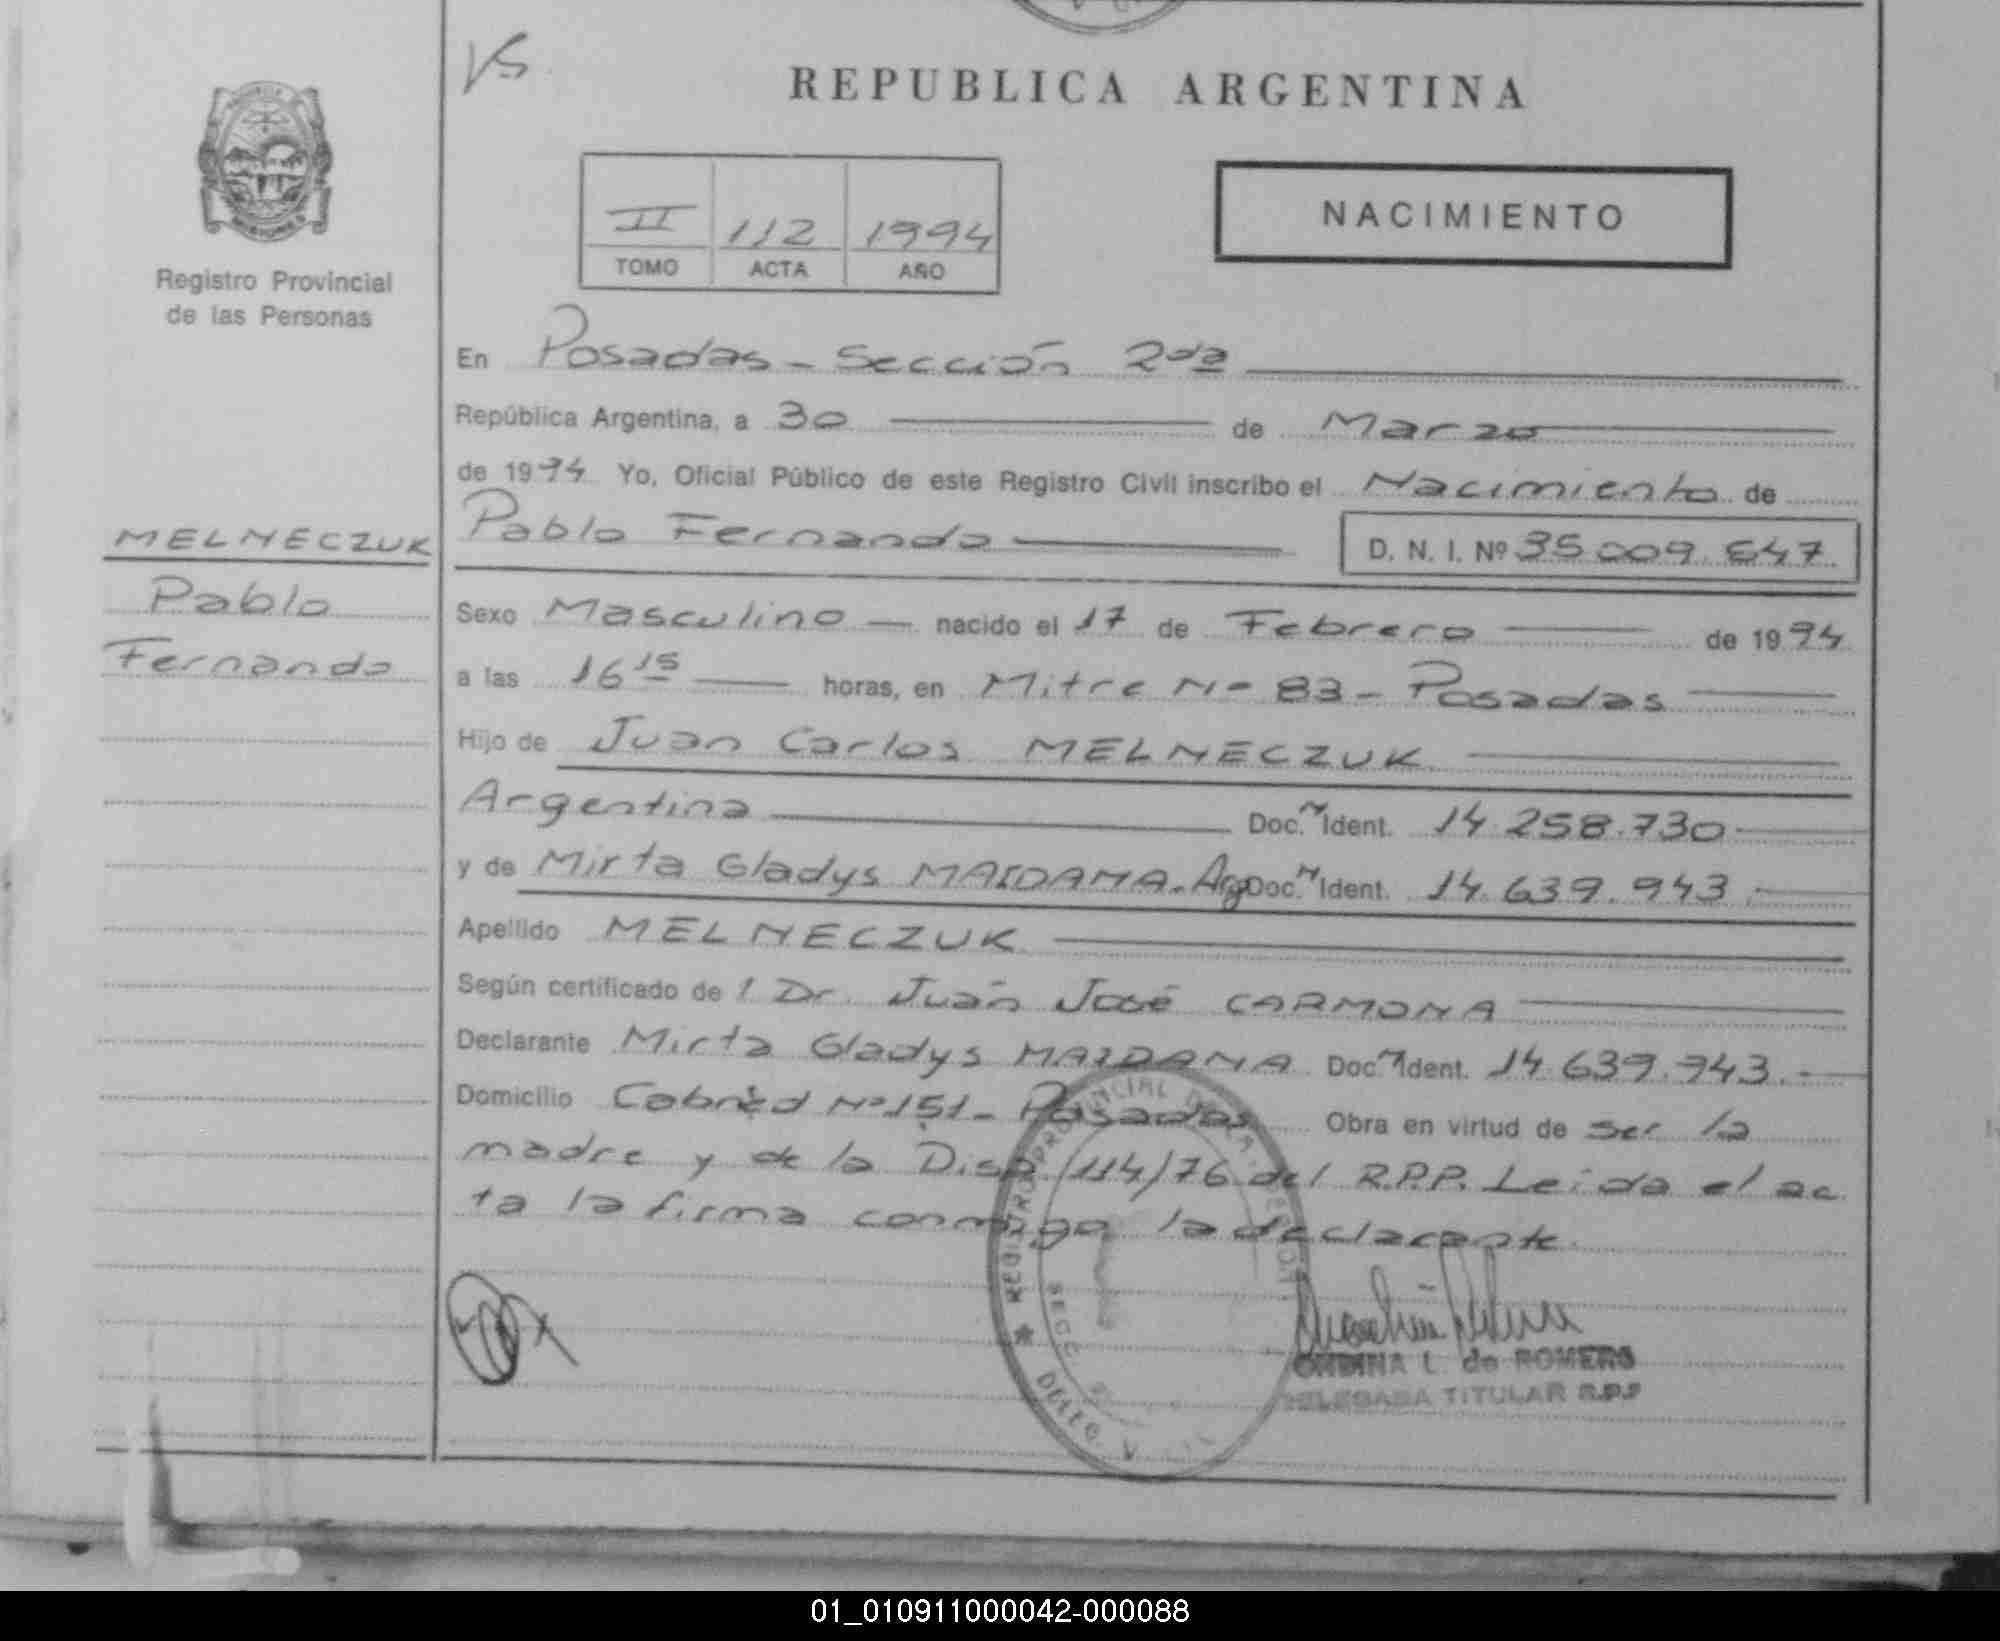 VS
REPUBLICA ARGENTINA
II 112 1994
TOMO ACTA AÑO
NACIMIENTO
Registro Provincial
de las Personas
En Posadas - Sección 2da
República Argentina, a 30 de Marzo
de 1994 Yo, Oficial Público de este Registro Civil inscribo el Nacimiento de
MELNECZUK
Pablo
Fernando
Pablo Fernando D. N. I. Nº 35.009.647.
Sexo Masculino nacido el 17 de Febrero de 1994
a las 16 15 horas, en Mitre Nº 83 - Posadas
Hijo de Juan Carlos MELNECZUK
Argentina Doc. N Ident. 14.258.730
y de Mirta Gladys MAIDANA. Arg Doc. N Ident. 14.639.943.
Apellido MELNECZUK
Según certificado de l Dr. Juan José CARMONA
Declarante Mirta Gladys MAIDANA Doc. N Ident. 14.639.943.-
Domicilio Nº 151 - Posadas Obra en virtud de ser la
madre y de la Disp. 114/76 del R.P.P. Leida el ac
ta la firma conmigo la declarante.
REGISTRO PROVINCIAL DE LA
SECC.
DPTO.
L. de ROMERO
DELEGADA TITULAR R.P.P
01_010911000042-000088